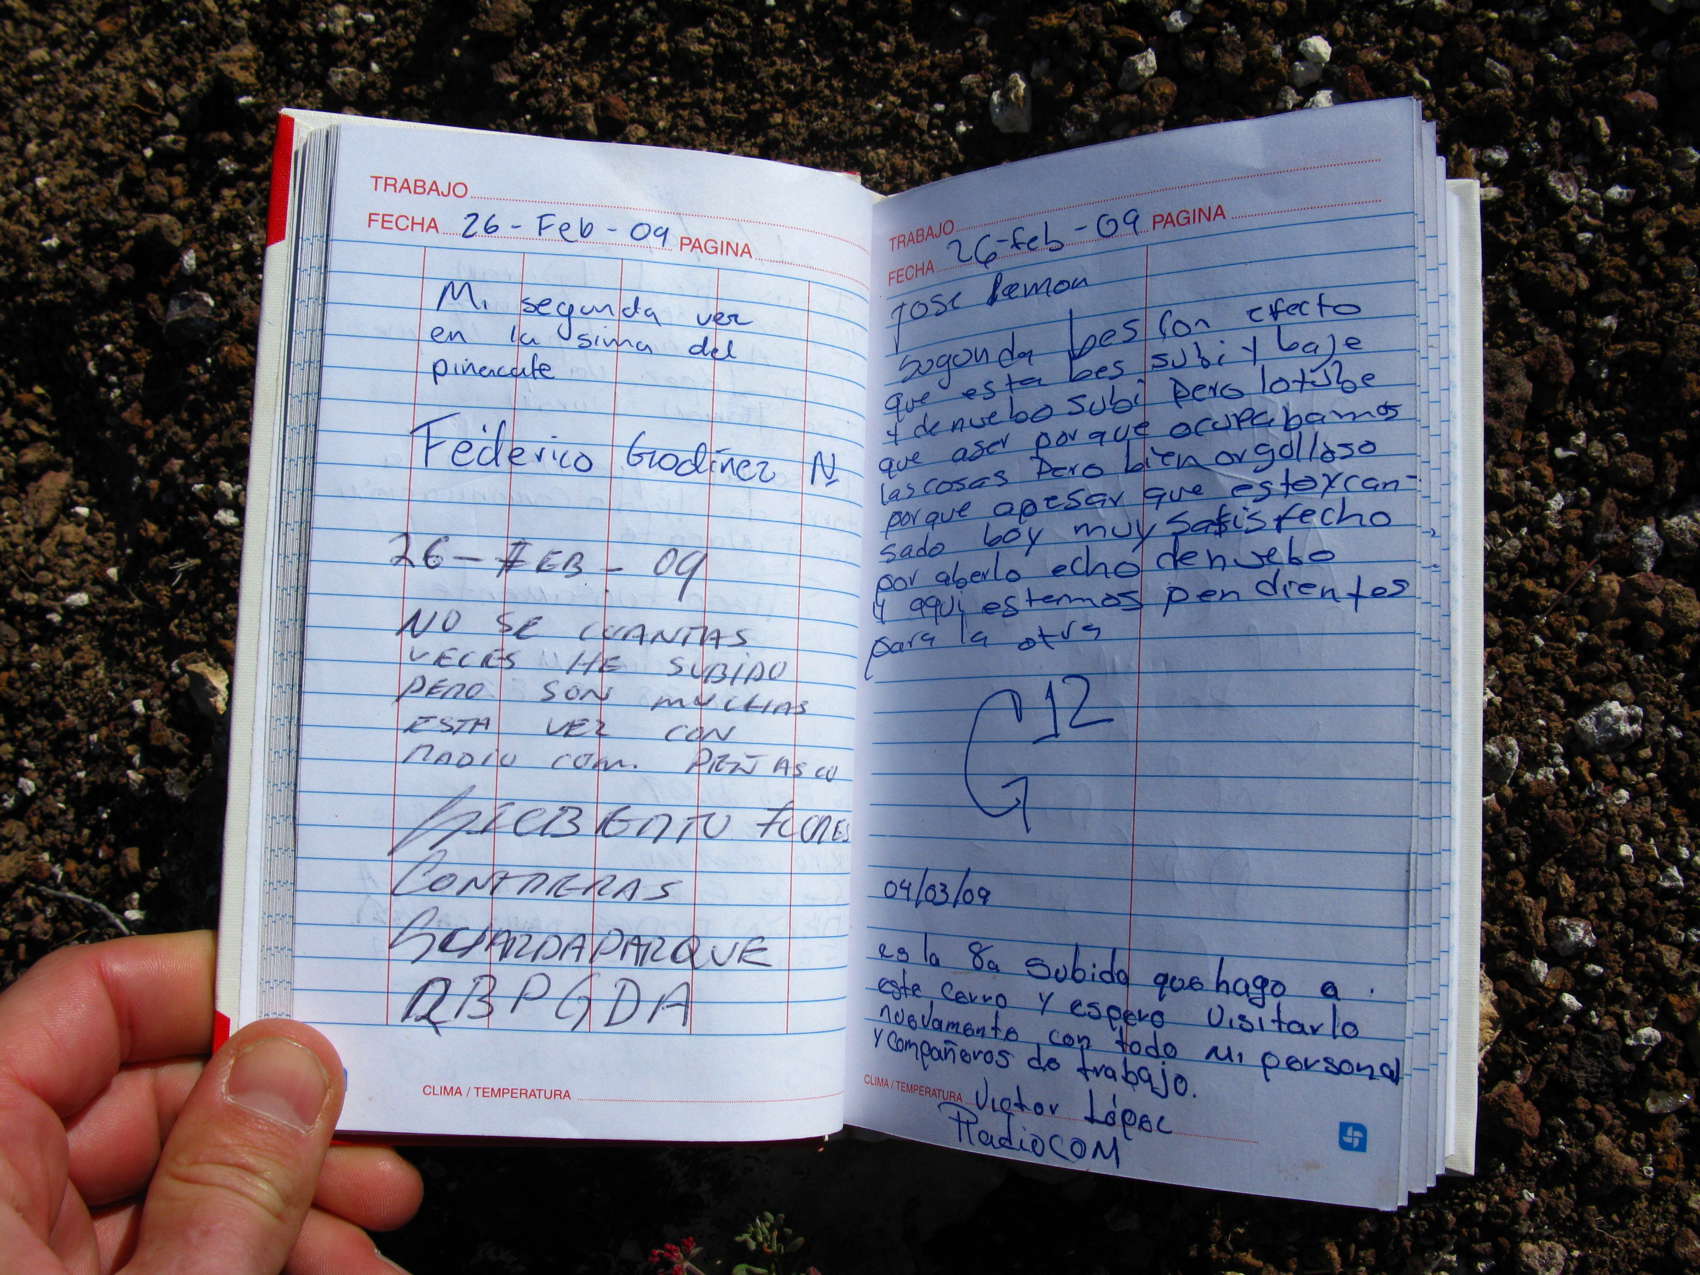 TRABAJO
FECHA 26-Feb-09 PAGINA
Mi segunda vez
en la sima del
pinacate
Federico Godínez N
26-FEB-09
NO SE CUANTAS
VECES HE SUBIDO
PERO SON MUCHAS
ESTA VEZ CON
RADIO COM. PEÑASCO
FLORES
CONTRERAS
GUARDAPARQUE
RBPGDA
CLIMA / TEMPERATURA
TRABAJO
FECHA 26-feb-09 PAGINA
Jose Ramon
Segunda bes con efecto
que esta bes subi y baje
y denuebo subi pero lotube
que aser porque ocupabamos
las cosas pero bien orgolloso
porque apesar que estoy can-
sado boy muy satisfecho
por aberlo echo denuebo
y aqui estemos pendientes
para la otra
G12
04/03/09
es la 8a subida que hago a
este cerro y espero visitarlo
nuevamente con todo mi personal
y compañeros de trabajo.
CLIMA / TEMPERATURA Victor López
RadioCOM